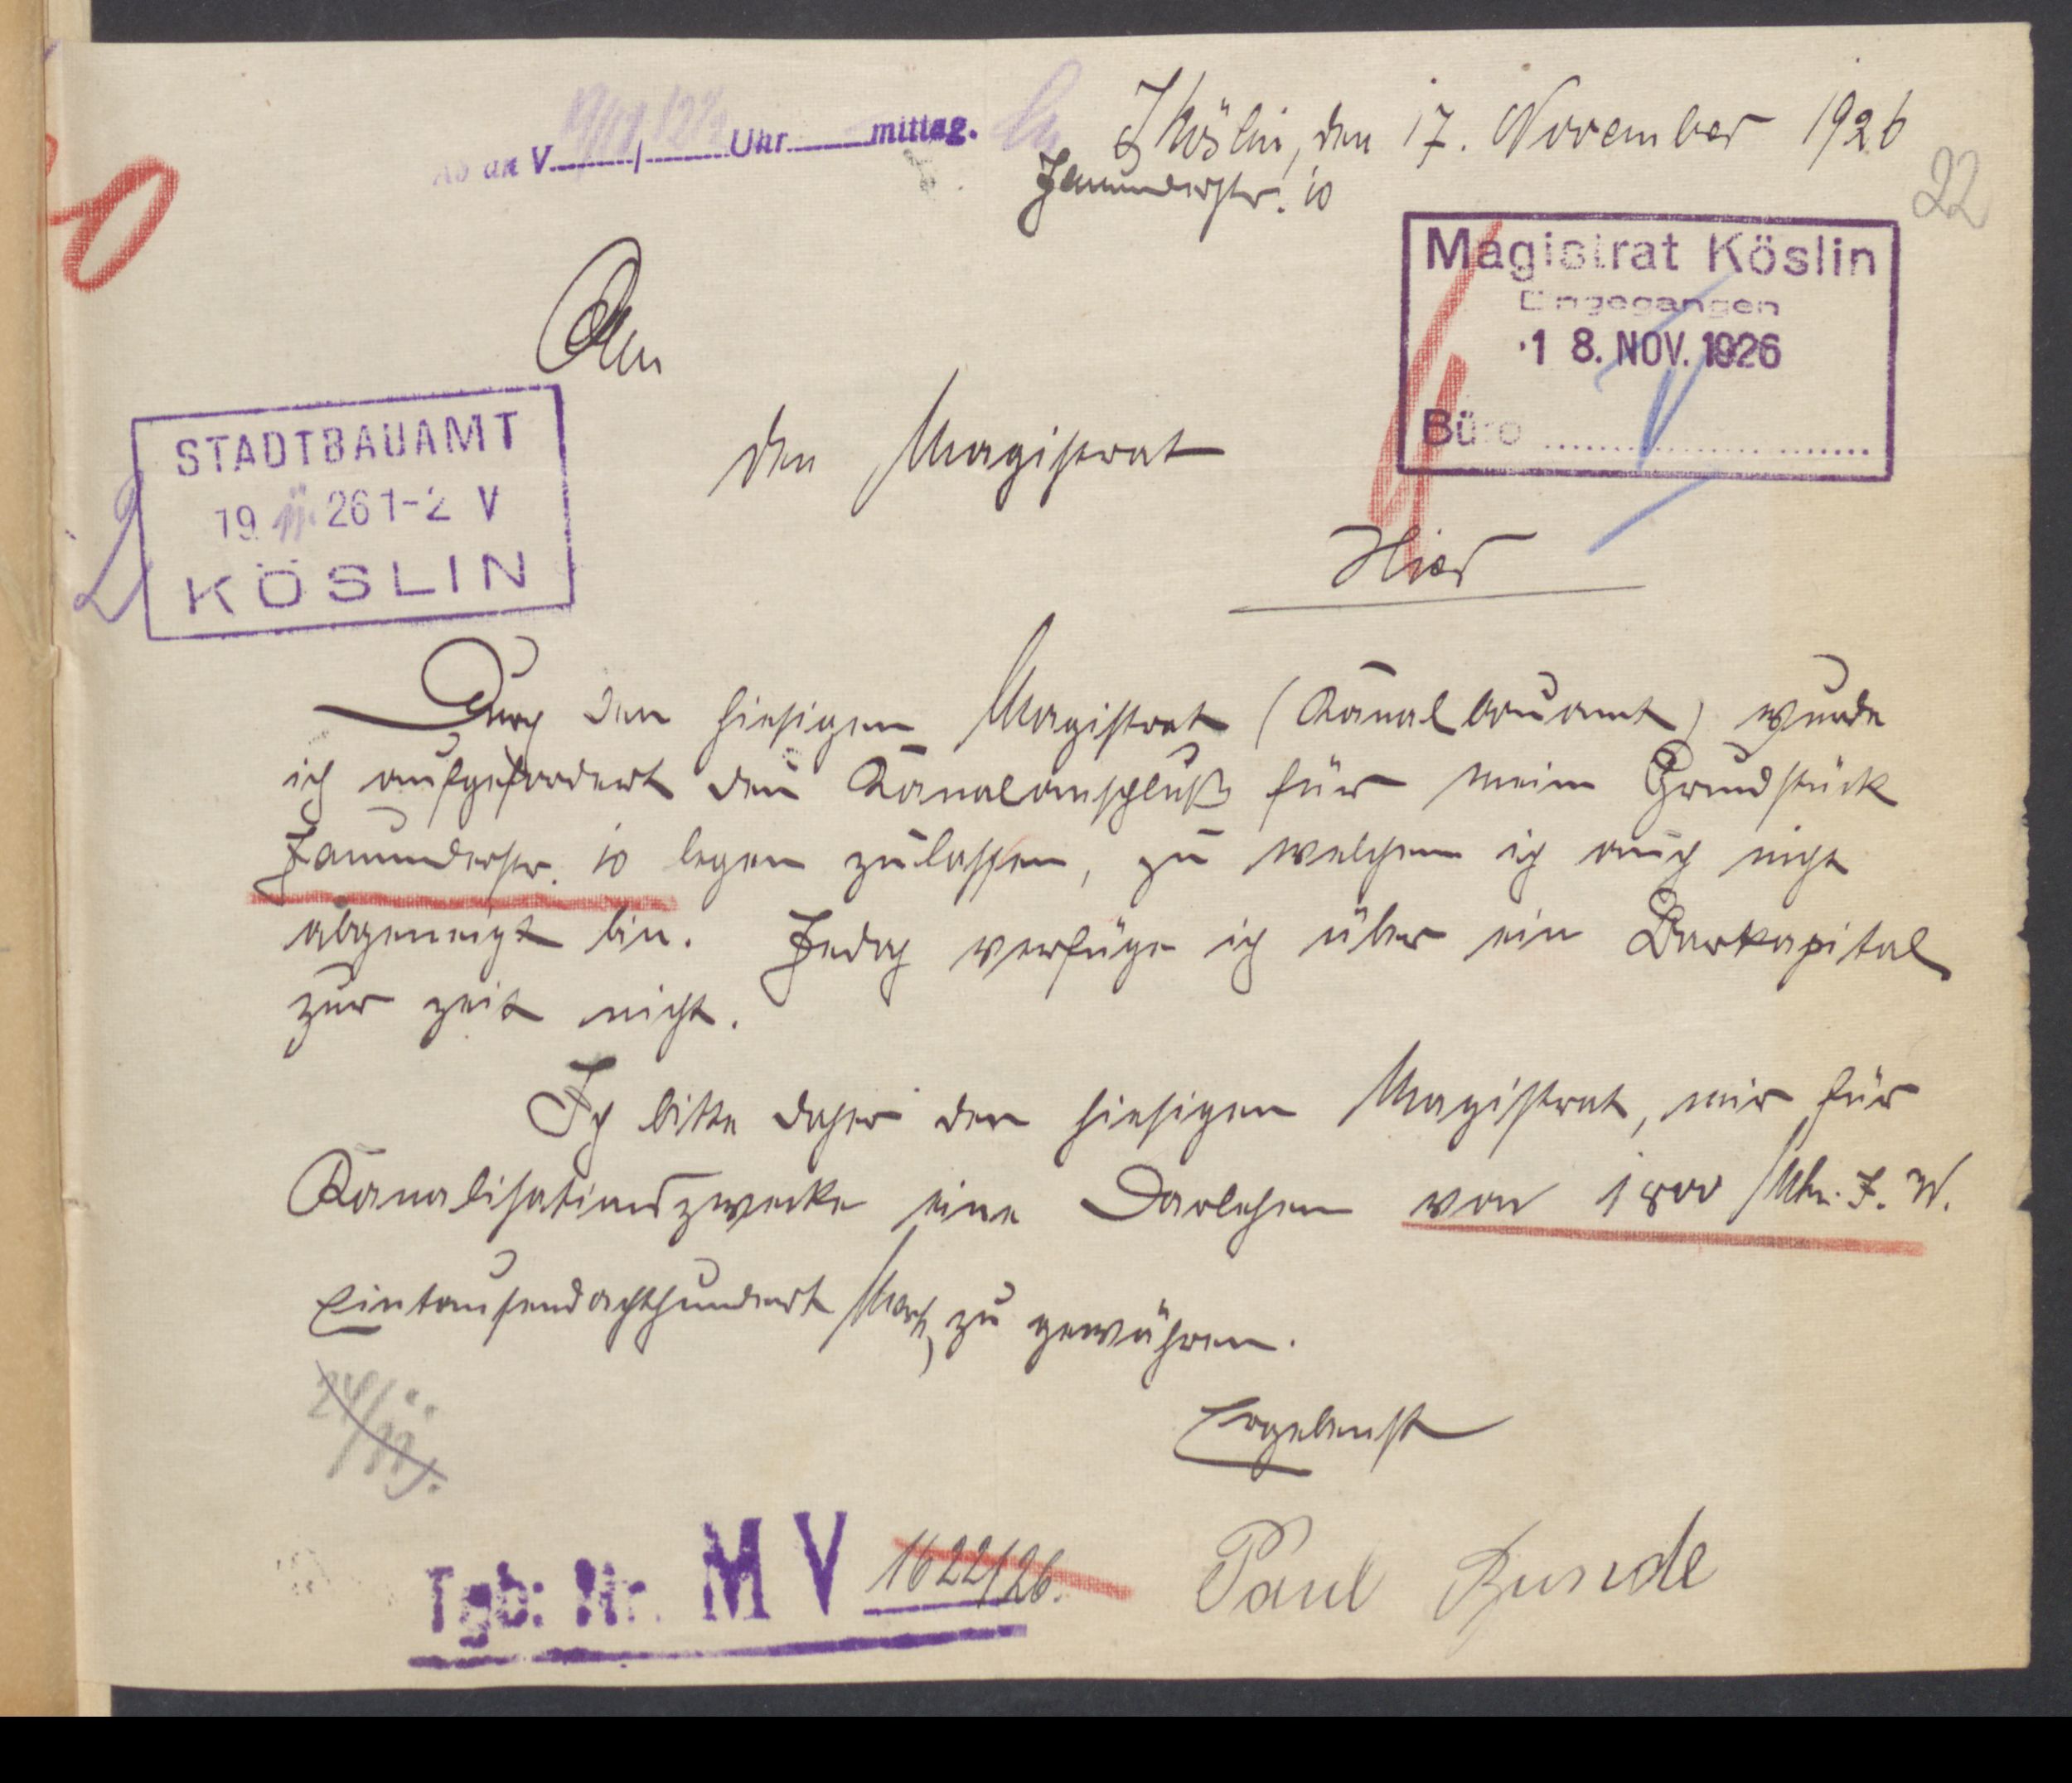 Ab an V. 19/11 / 12½ Uhr mittag.
Köslin, den 17. November 1926
Jamunderstr. 10
22
Magistrat Köslin
Eingegangen
18. NOV. 1926
Büro
An
STADTBAUAMT
19 11. 26 1-2 V
KÖSLIN
den Magistrat
Hier
Durch den hiesigen Magistrat (Kanalbauamt) wurde
ich aufgefordert den Kanalanschluß für mein Grundstück
Jamunderstr. 10 legen zulassen, zu welchem ich auch nicht
abgeneigt bin. Jedoch verfüge ich über ein Barkapital
zur zeit nicht.
Ich bitte daher den hiesigen Magistrat, mir für
Kanalisationszwecke eine Darlehen von 1800 Mk. J. W.
Eintausendachthundert Mark, zu gewähren.
24/11.
Ergebenst
Tgb: Nr. M V 1622/26.
Paul